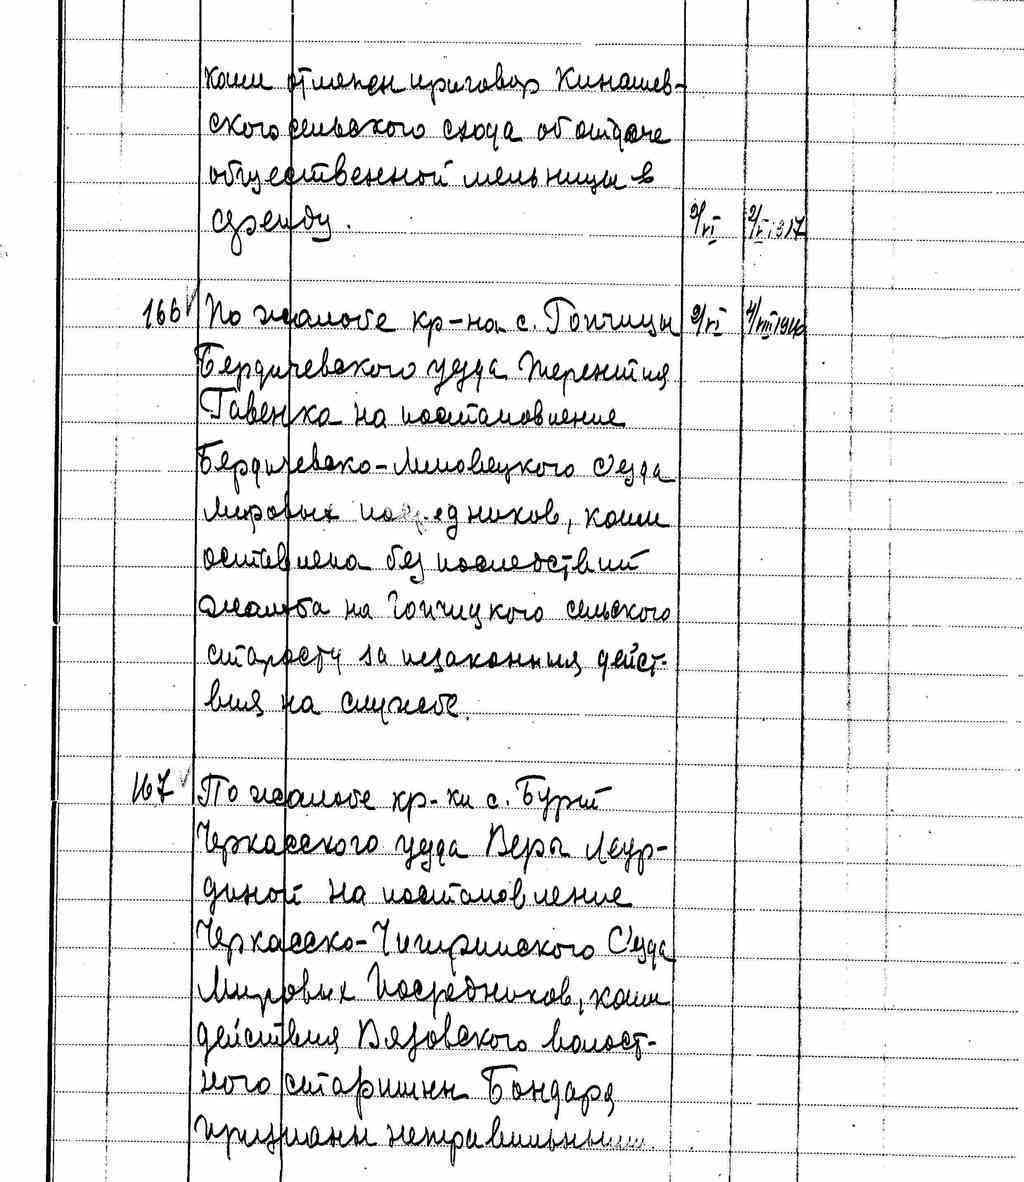 коим отменен приговор Кинашев-
ского сельского схода об отдаче
общественной мельницы в
аренду. 9/VI 2/VI 1917
166 По жалобе кр-на с. Гопчицы 9/VI 4/VIII
Бердичевского уезда Терентия
Гавенка на постановление
Бердичевско-Липовецкого С'езда
Мировых посредников, коим
оставлена без последствий
жалоба на Гопчицкого сельского
старосту за незаконныя дейст-
вия на службе.
167 По жалобе кр-ки с. Бурт
Черкасского уезда Веры
на постановление
Черкасско-Чигиринского С'езда
Мировых Посредников, коим
действия Вязовского волост-
ного старшины Бондаря
признаны неправильными.